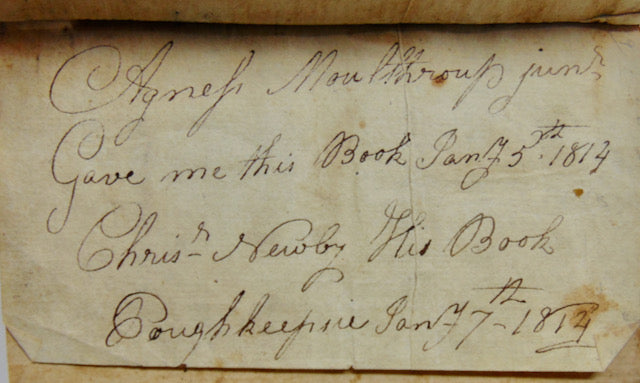 Agness Moulthroup junr
Gave me this Book Jany 5th 1814
Chrisr Newby His Book
Poughkeepsie Jany 7th 1814